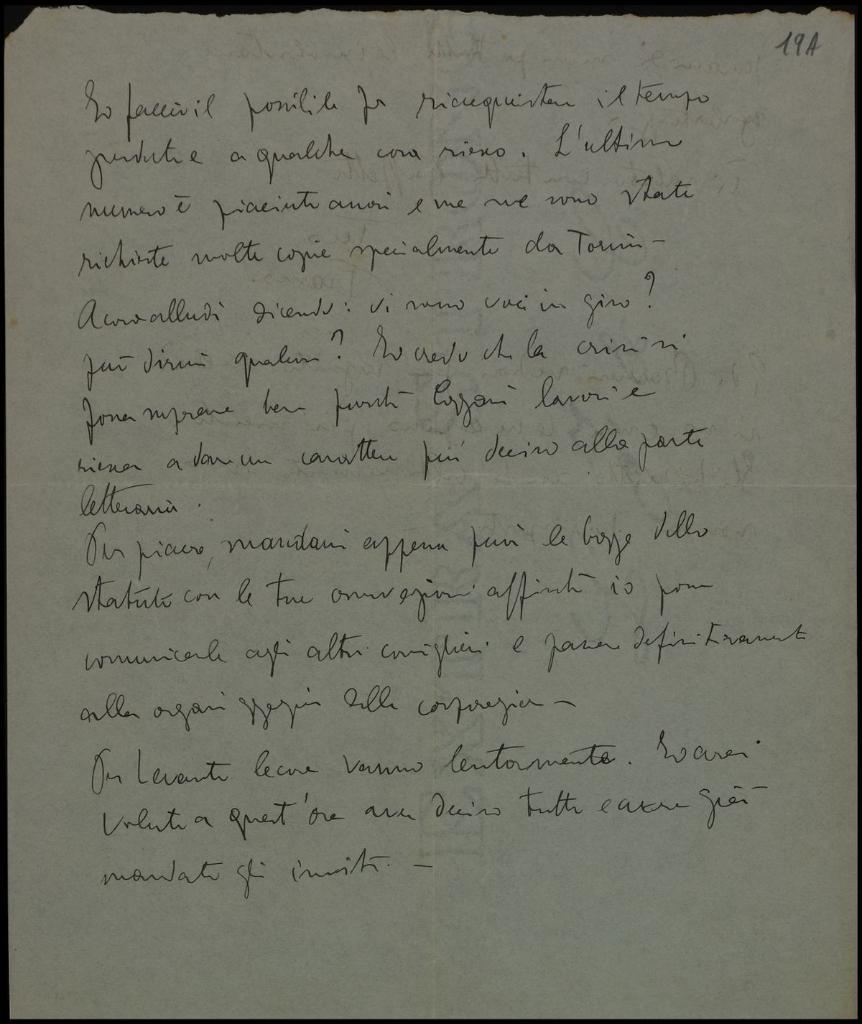 19A
Io faccio il possibile per riacquistare il tempo
perduto e a qualche cosa riesco. L'ultimo
numero è piaciuto assai e me ne sono state
richieste molte copie specialmente da Torino –
A cosa alludi dicendo: vi sono voci in giro?
puoi dirmi qualcosa? Io credo che la crisi si
possa superare bene purché lavori e
riesca a dare un carattere più deciso alla parte
letteraria.
Per piacere, mandami appena puoi le bozze dello
statuto con le tue osservazioni affinché io possa
comunicarle agli altri consiglieri e passare definitivamente
alla organizzazione della –
Per Levante le cose vanno lentamente. Io avrei
voluto a quest'ora aver deciso tutto e avere già
mandato gli inviti. –